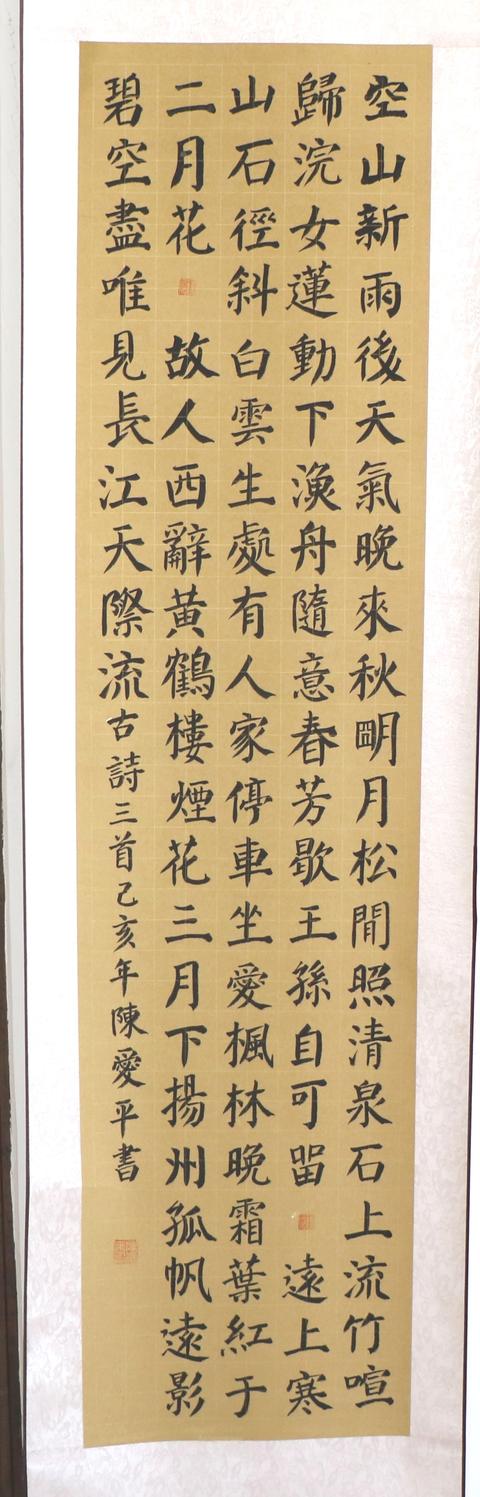 空山新雨後天氣晚來秋朙月松間照清泉石上流竹喧
歸浣女蓮動下漁舟隨意春芳歇王孫自可留遠上寒
山石徑斜白雲生處有人家停車坐愛楓林晚霜葉紅于
二月花故人西辭黄鶴樓煙花三月下揚州孤帆遠影
碧空盡唯見長江天際流古詩三首己亥年陳愛平書